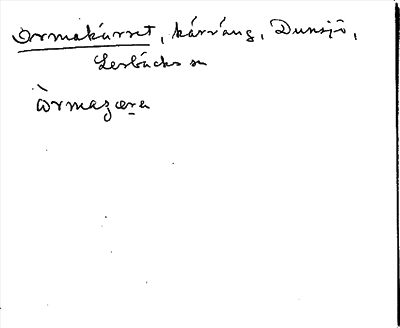 Ormakärret, kärräng, Dunsjö,
Lerbäcks sn
òrmaʒæra